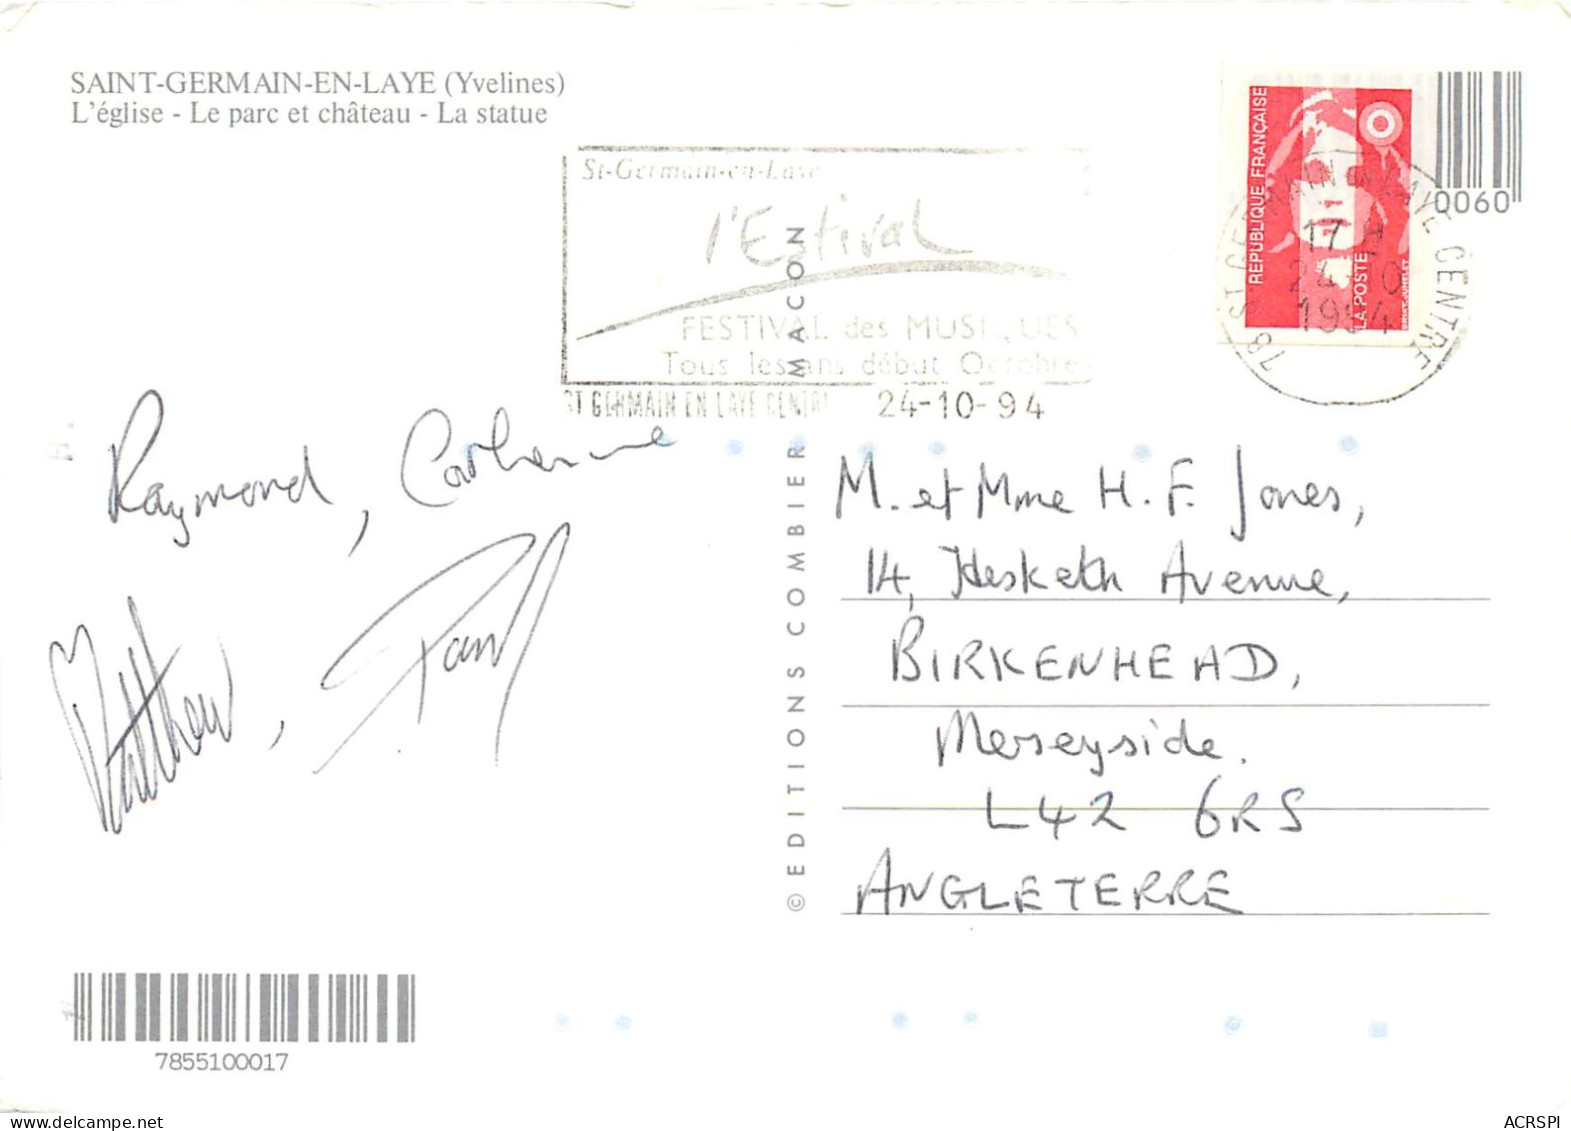 SAINT-GERMAIN-EN-LAYE (Yvelines)
L'église - Le parc et château - La statue
St-Germain-en-Laye
l'Estival
FESTIVAL des MUSIQUES
Tous les ans début Octobre
ST GERMAIN EN LAYE CENTRE 24-10-94
REPUBLIQUE FRANÇAISE
LA POSTE
0060
78 ST GERMAIN EN LAYE CENTRE
17 H
24-10
1994
Raymond, Catherine
Matthew, Paul
© EDITIONS COMBIER MACON
M. et Mme H. F. Jones,
14, Hesketh Avenue,
BIRKENHEAD,
Merseyside.
L42 6RS
ANGLETERRE
7855100017
ACRSPI